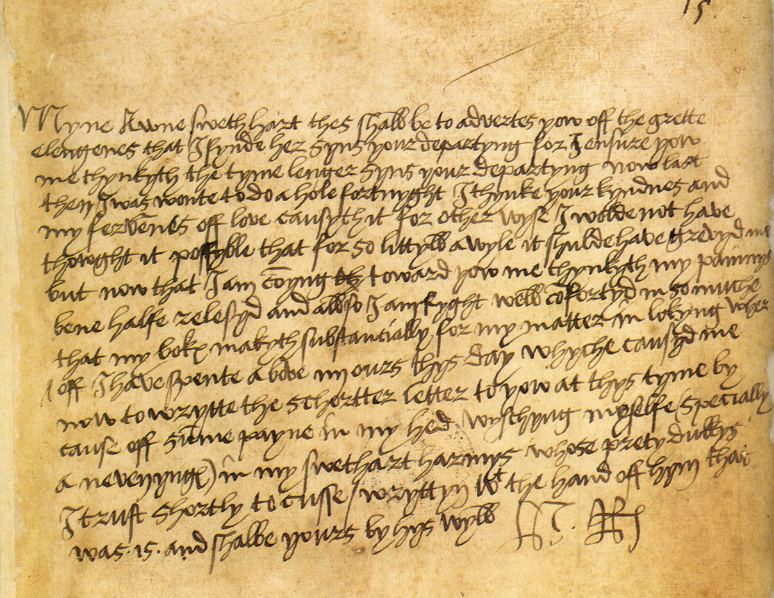 15
Myne Awne swethhart thes shall be to advertes yow off the grette
elengenes that I fynde her syns your departyng for I ensure yow
me thynkyth the tyme lenger syns your departyng now last
then I was wonte to do a hole fortnyght I thynke your kyndnes and
my fervents off love causyth it for other wyse I wolde not have
thowght it possyble that for so littyll a wyle it shulde have grevyd me
but now that I am comyng toward yow me thynkyth my paynnys
bene halfe relesyd and allso I am ryght well cofortyd in so muche
that my boke makyth substantially for my matter in lokyng wher
off I have spente above iiij ours thys day whyche causyd me
now to wrytte the schortter letter to yow at thys tyme by
cause off sume payne in my hed wyschyng my selfe (specially
a nevenynge) in my swethart harmys whose prety dukkys
I trust shortly to cusse / wryttyn wt the hand off hym that
was . is . and shalbe yours by hys wyll H. R